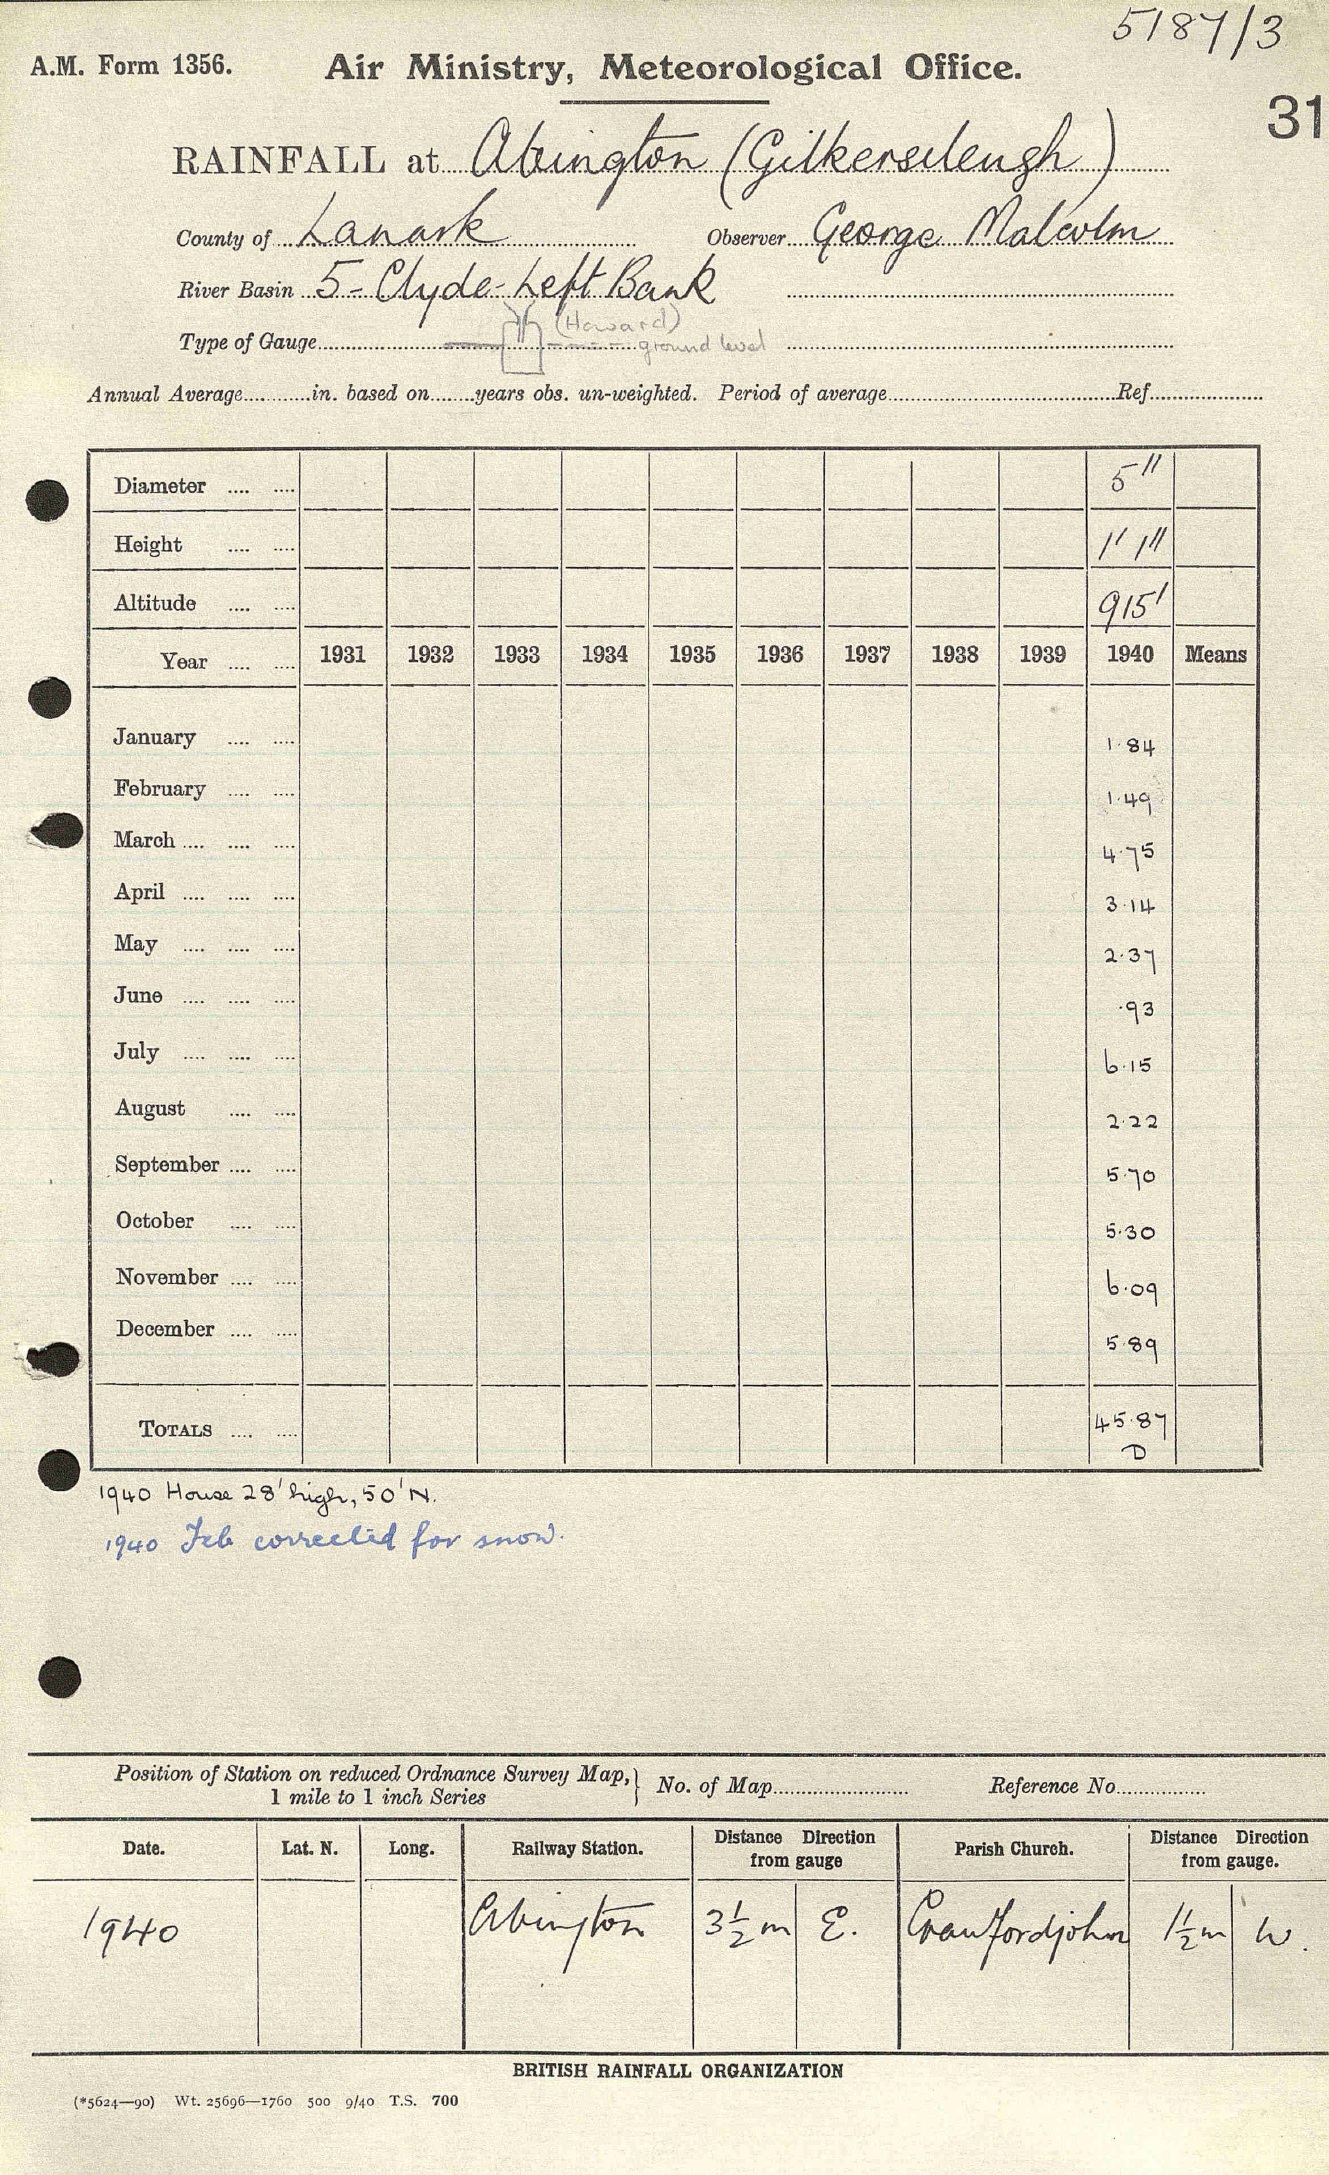 5187/3
A.M. Form 1356. Air Ministry, Meteorological Office.
31
RAINFALL at Abington (Gilkerscleugh)
County of Lanark Observer George Malcolm
River Basin 5 - Clyde - Left Bank
(Howard)
Type of Gauge ground level
Annual Average in. based on years obs. un-weighted. Period of average Ref
Diameter 5"
Height 1' 1"
Altitude 915'
Year 1931 1932 1933 1934 1935 1936 1937 1938 1939 1940 Means
January 1.84
February 1.49
March 4.75
April 3.14
May 2.37
June .93
July 6.15
August 2.22
September 5.70
October 5.30
November 6.09
December 5.89
TOTALS 45.87
D
1940 House 28' high, 50' N.
1940 Feb corrected for snow.
Position of Station on reduced Ordnance Survey Map, } No. of Map Reference No.
1 mile to 1 inch Series
Date. Lat. N. Long. Railway Station. Distance Direction from gauge Parish Church. Distance Direction from gauge.
1940 Abington 3½ m E. Crawfordjohn 1½ m W.
BRITISH RAINFALL ORGANIZATION
(*5624—90) Wt. 25696—1760 500 9/40 T.S. 700